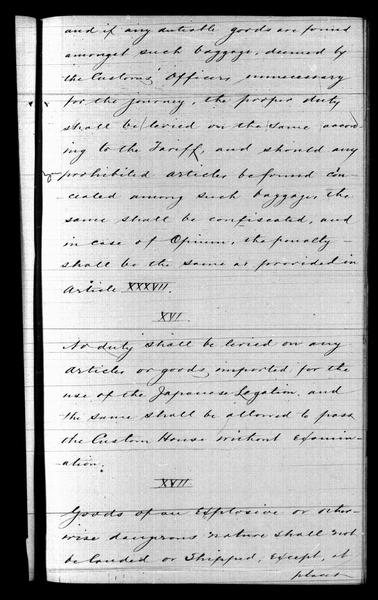 and if any dutiable goods are found
amongst such baggage, deemed by
the Customs' Officers, unnecessary
for the journey, the proper duty
shall be levied on the same accord-
ing to the Tariff, and should any
prohibited articles be found con-
cealed among such baggage, the
same shall be confiscated, and
in case of Opium, the penalty
shall be the same as provided in
Article XXXVII.
XVI
No duty shall be levied on any
articles or goods, imported for the
use of the Japanese Legation, and
the same shall be allowed to pass
the Custom House without examin-
ation.
XVII
Goods of an Explosive or other-
wise dangerous nature shall not
be landed or Shipped, except, at
places